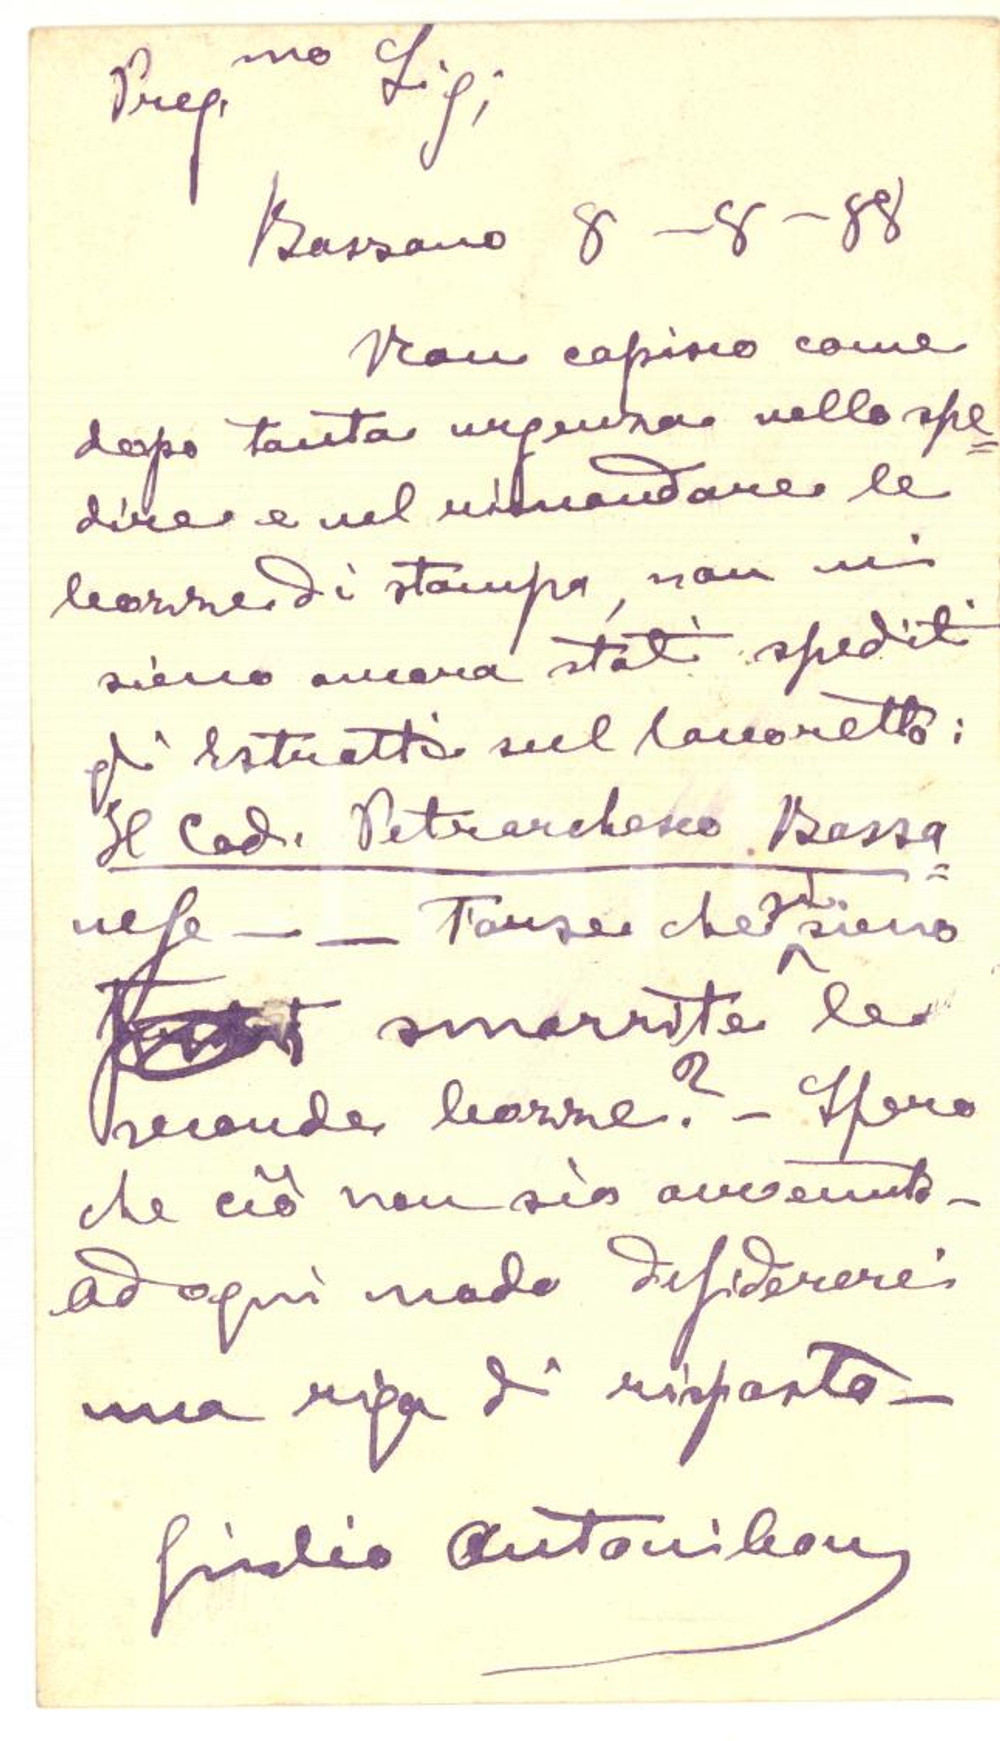 Preg.mo Sig;
Bassano 8-8-88
Non capisco come
dopo tanta urgenza nello spe=
dire e nel rimandare le
bozze di stampa, non mi
sieno ancora stati spediti
gli Estratti sul lavoretto:
Il Cod. Petrarchesco Bassa=
nese — — Forse che si sieno
smarrite le
seconde bozze? - Spero
che ciò non sia avvenuto -
Ad ogni modo desidererei
una riga di risposta -
Giulio Antonibon